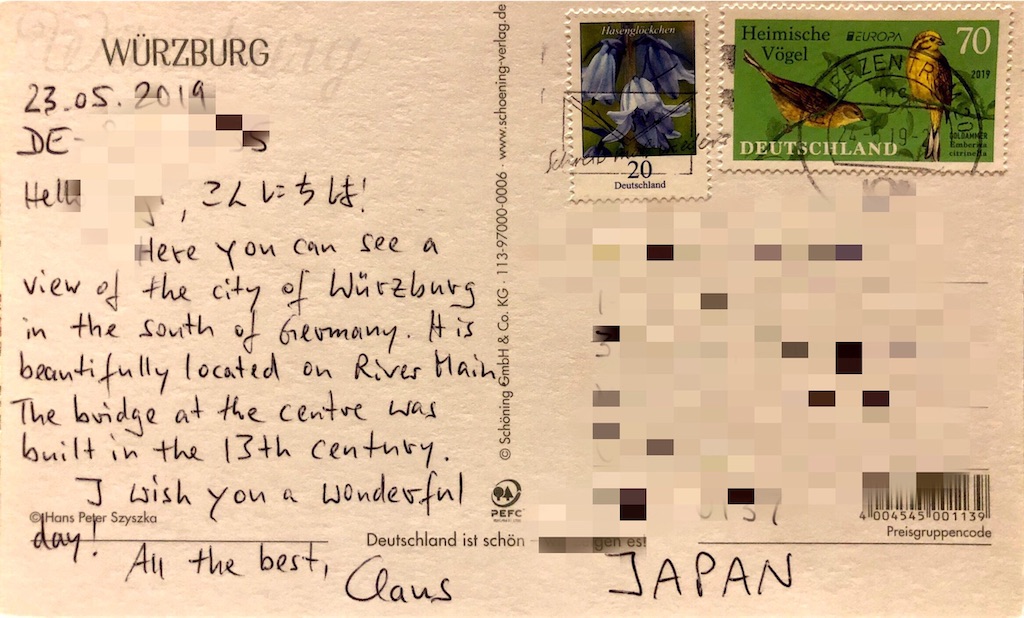 WÜRZBURG
23.05.2019
DE-
Hell , こんにちは!
Here you can see a
view of the city of Würzburg
in the south of Germany. It is
beautifully located on River Main.
The bridge at the centre was
built in the 13th century.
I wish you a wonderful
day!
All the best,
Claus
© Hans Peter Szyszka
© Schöning GmbH & Co. KG · 113-97000-0006 · www.schoening-verlag.de
PEFC
Deutschland ist schön
Hasenglöckchen
20
Deutschland
Heimische
Vögel
EUROPA
70
2019
DEUTSCHLAND
GOLDAMMER
Emberiza
citrinella
4 004545 001139
Preisgruppencode
JAPAN